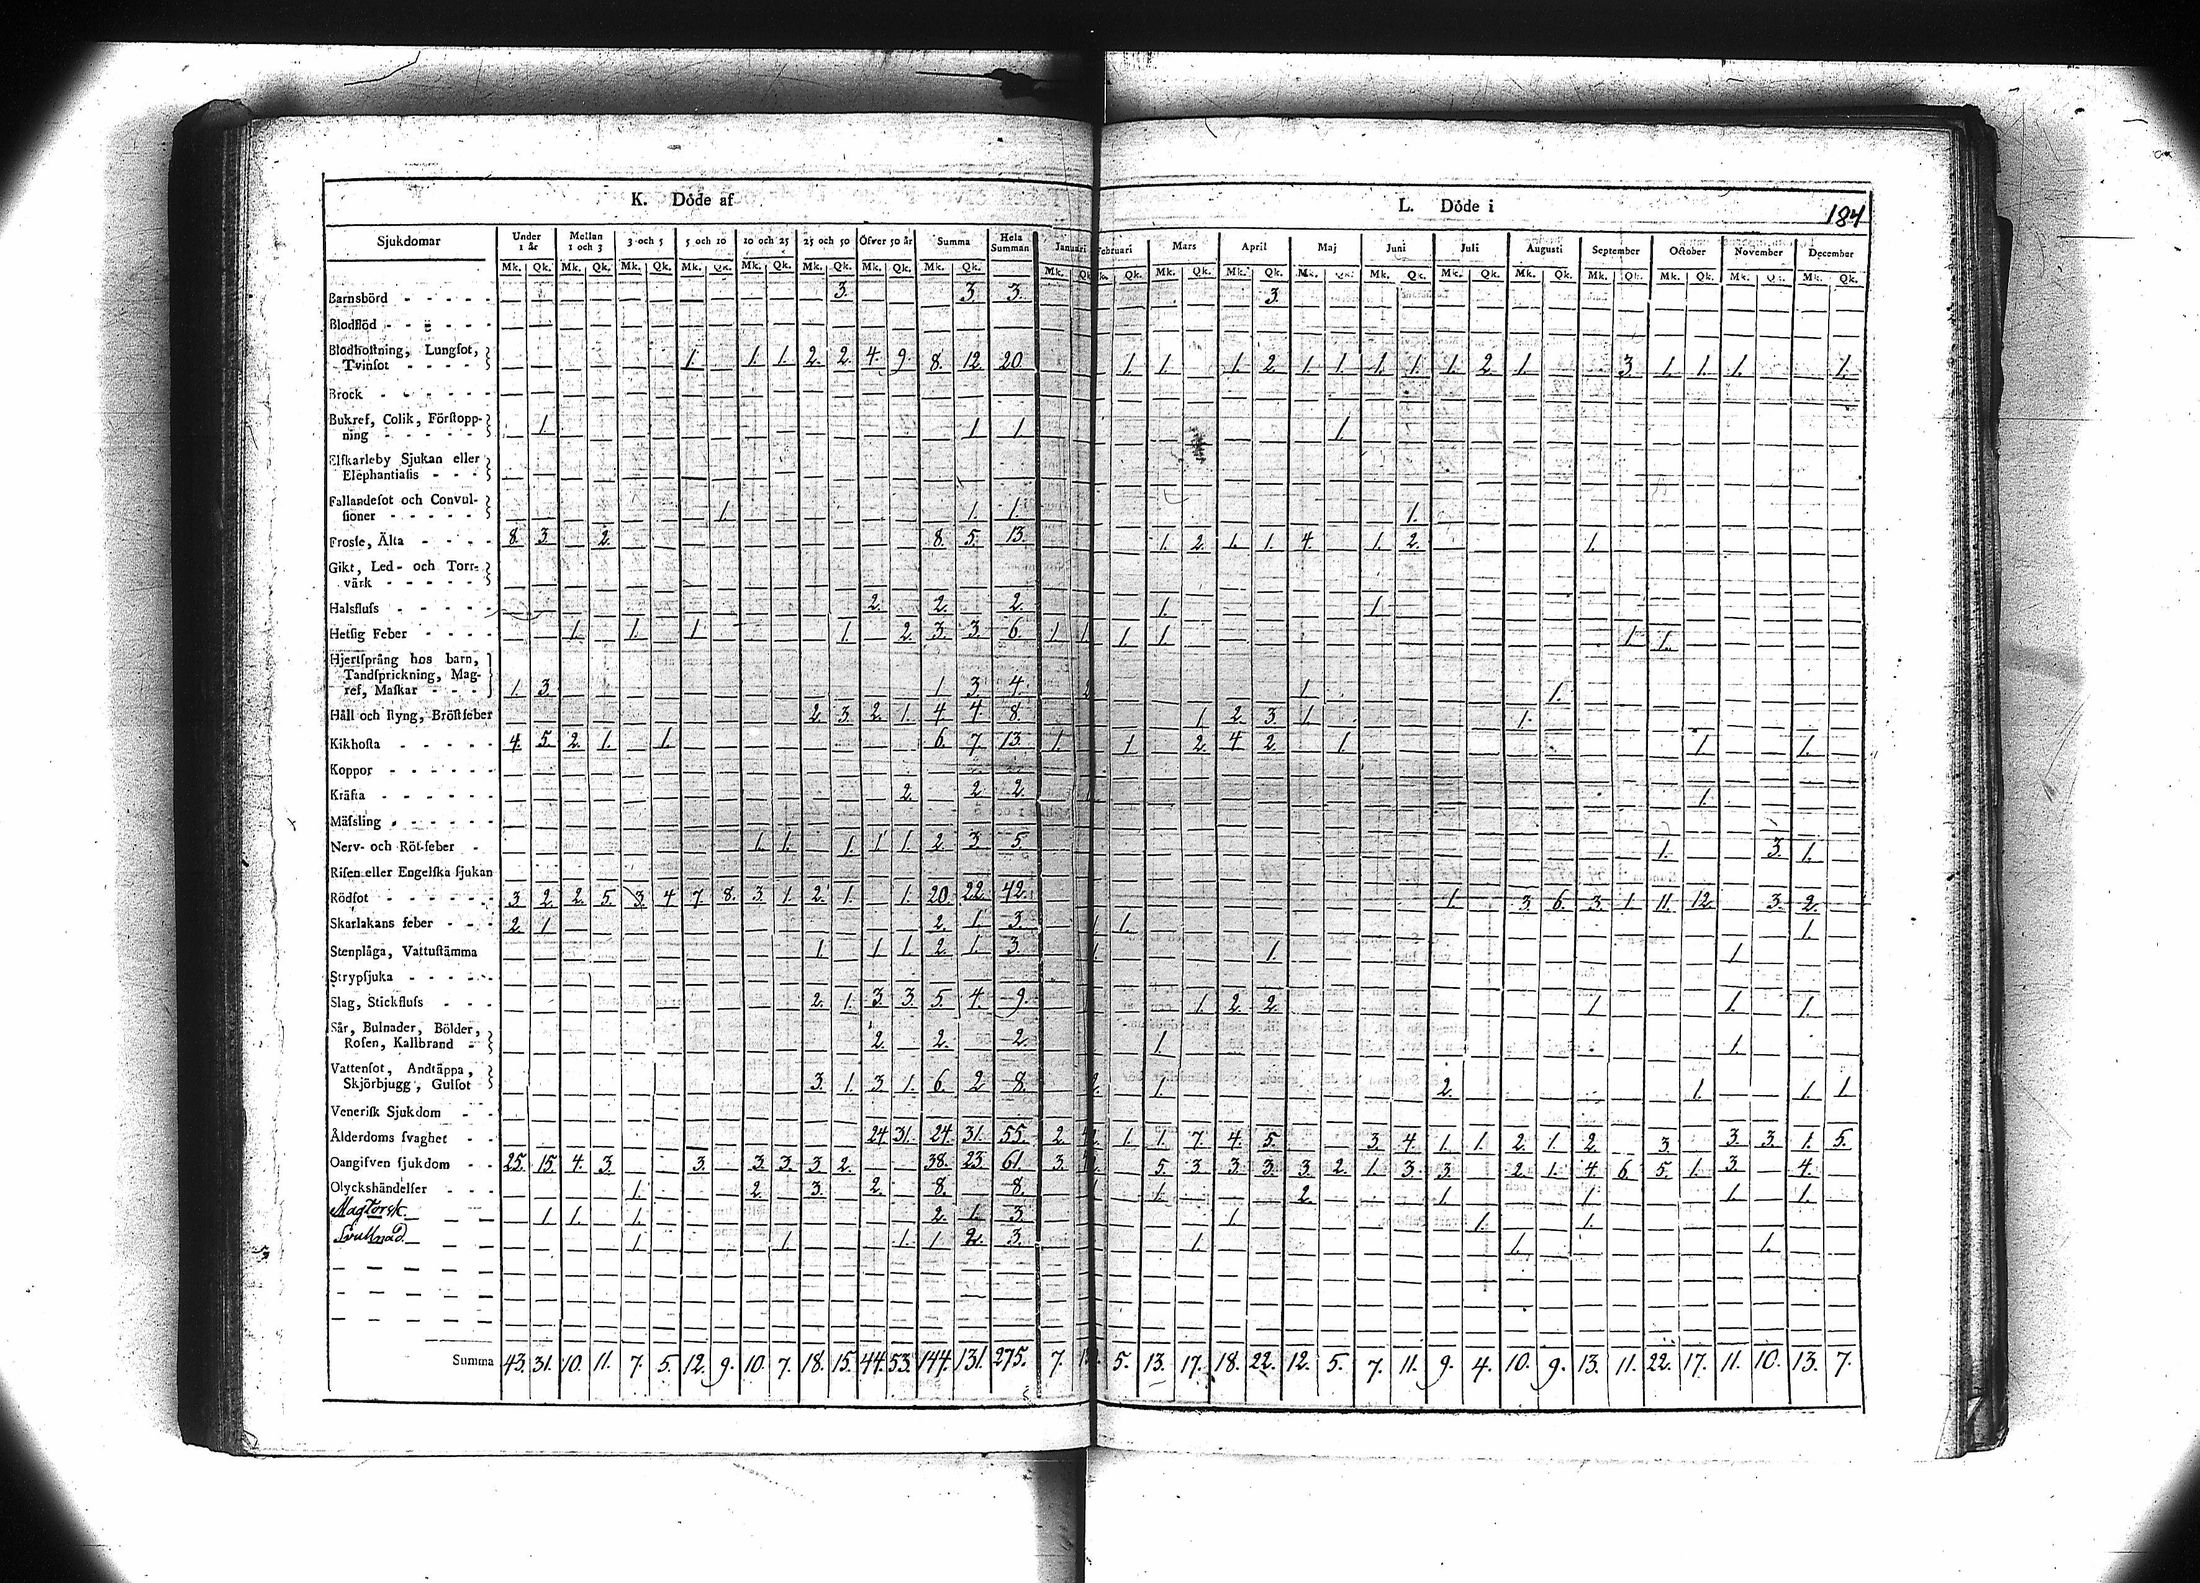 K. Döde af
L. Döde i
184
Sjukdomar | Under 1 år | Mellan 1 och 3 | 3 och 5 | 5 och 10 | 10 och 25 | 25 och 50 | Öfver 50 år | Summa | Hela Summan | Januari | Februari | Mars | April | Maj | Juni | Juli | Augusti | September | October | November | December
Mk. Qk. Mk. Qk. Mk. Qk. Mk. Qk. Mk. Qk. Mk. Qk. Mk. Qk. Mk. Qk. Mk. Qk. Mk. Qk. Mk. Qk. Mk. Qk. Mk. Qk. Mk. Qk. Mk. Qk. Mk. Qk. Mk. Qk. Mk. Qk. Mk. Qk. Mk. Qk.
Barnsbörd - - - - - 3. 3. 3. 3.
Blodflöd - - - - - -
Blodhoſtning, Lungſot,
Tvinſot - - - - 1. 1. 1. 2. 2. 4. 9. 8. 12. 20. 1. 1. 1. 2. 1. 1. 1. 1. 1. 2. 1. 3. 1. 1. 1. 1.
Brock - - - - - -
Bukref, Colik, Förſtopp-
ning - - - - - 1. 1 1 1
Elſkarleby Sjukan eller
Elephantiaſis - - -
Fallandeſot och Convul-
ſioner - - - - - 1. 1. 1. 1.
Froſſe, Älta - - - - 8. 3. 2. 8. 5. 13. 1. 2. 1. 1. 4. 1. 2. 1.
Gikt, Led- och Torr-
värk - - - - -
Halsfluſs - - - - - 2. 2. 2. 1. 1.
Hetſig Feber - - - - 1. 1. 1 1. 2. 3. 3. 6. 1. 1. 1. 1. 1. 1.
Hjertſprång hos barn,
Tandſprickning, Mag-
ref, Maſkar - - - 1. 3. 1 3. 4. 1. 1.
Håll och ſtyng, Bröſtfeber 2. 3. 2. 1. 4. 4. 8. 1. 2. 3. 1. 1.
Kikhoſta - - - - - 4. 5. 2. 1. 1. 6. 7. 13. 1. 1 2. 4. 2. 1. 1. 1.
Koppor - - - - - -
Kräfta - - - - - - 2. 2 2. 1.
Mäſsling - - - - -
Nerv- och Röt-feber - 1. 1. 1. 1 1. 2. 3 5. 1. 3. 1.
Riſen eller Engelſka ſjukan
Rödſot - - - - - - 3. 2. 2. 5. 3. 4. 7. 8. 3. 1. 2. 1. 1. 20. 22. 42. 1. 3. 6. 3. 1. 11. 12. 3. 2.
Skarlakans feber - - - 2. 1 2. 1. 3. 1. 1.
Stenplåga, Vattuſtämma 1. 1 1. 2. 1. 3. 1. 1.
Strypſjuka - - - - -
Slag, Stickfluſs - - - 2. 1. 3. 3. 5. 4 9. 1. 2. 2. 1 1. 1.
Sår, Bulnader, Bölder,
Roſen, Kallbrand - 2. 2. 2. 1. 1.
Vattenſot, Andtäppa,
Skjörbjugg, Gulſot 3. 1. 3. 1. 6. 2. 8. 1. 2. 1. 1. 1.
Veneriſk Sjukdom - -
Ålderdoms ſvaghet - - 24. 31. 24. 31. 55. 2. 1. 1. 7. 4. 5. 3. 4. 1. 1. 2. 1. 2. 3. 3. 3. 1. 5.
Oangifven ſjukdom - - 25. 15. 4. 3. 3. 3. 3. 3. 2. 38. 23. 61. 3. 5. 3. 3. 3. 3. 2. 1. 3. 3. 2. 1. 4. 6. 5. 1. 3. 4.
Olyckshändelſer - - - 1. 2. 3. 2. 8. 8. 1. 2. 1. 1. 1. 1.
Magtorsk. 1 1. 1. 2. 1. 3. 1. 1. 1.
1. 1. 1. 1. 2. 3. 1. 1. 1.
Summa 43. 31. 10. 11. 7. 5. 12. 9. 10. 7. 18. 15. 44. 53. 144. 131. 275. 7. 5. 13. 17. 18. 22. 12. 5. 7. 11. 9. 4. 10. 9. 13. 11. 22. 17. 11. 10. 13. 7.